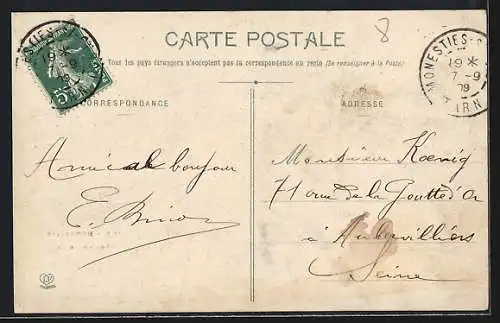 8
CARTE POSTALE
Tous les pays étrangers n'acceptent pas la correspondance au recto (Se renseigner à la Poste)
CORRESPONDANCE
ADRESSE
MONESTIÉS
19 *
7 - 9
09
TARN
19 *
9
09
5
Amical bonjour
Monsieur Koenig
71 rue de la Goutte d'Or
à Aubervilliers
Seine